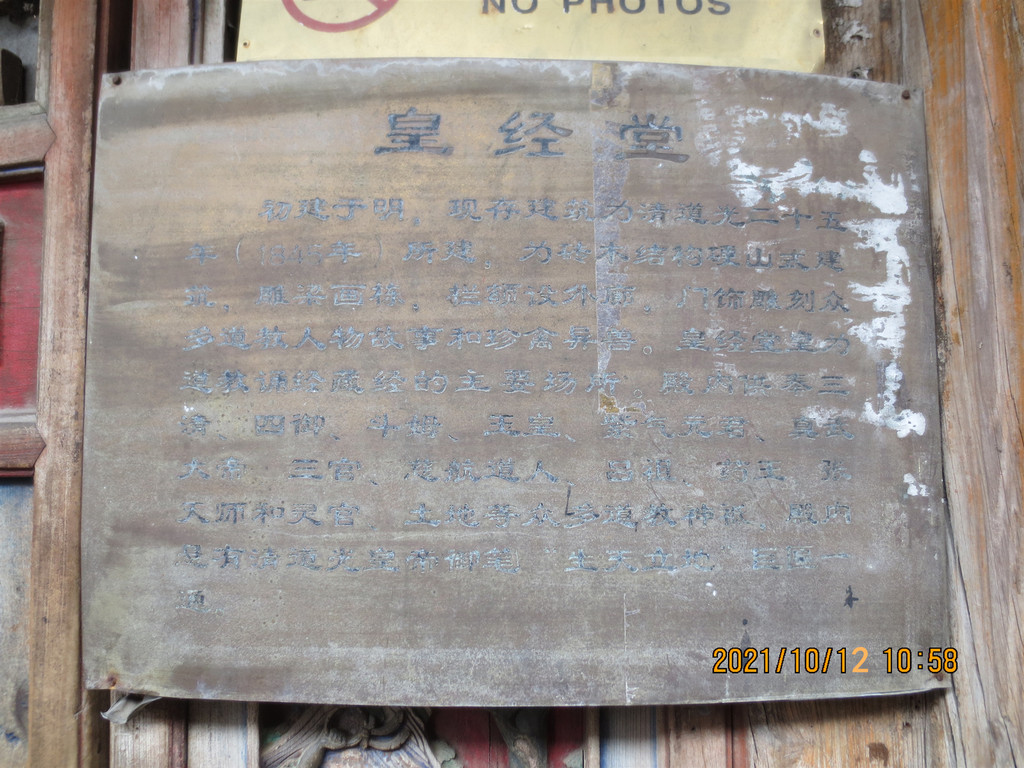 NO PHOTOS
皇经堂
初建于明，现存建筑为清道光二十五
年（1845年）所建。为砖木结构硬山式建
筑，雕梁画栋，栏额设外廊，门饰雕刻众
多道教人物故事和珍禽异兽。皇经堂是为
道教诵经藏经的主要场所。殿内供奉三
清、四御、斗姆、玉皇、紫气元君、真武
大帝、三官、慈航道人、吕祖、药王、张
天师和灵官、土地等众多道教神祇，殿内
悬有清道光皇帝御笔“生天立地”匾一
2021/10/12 10:58